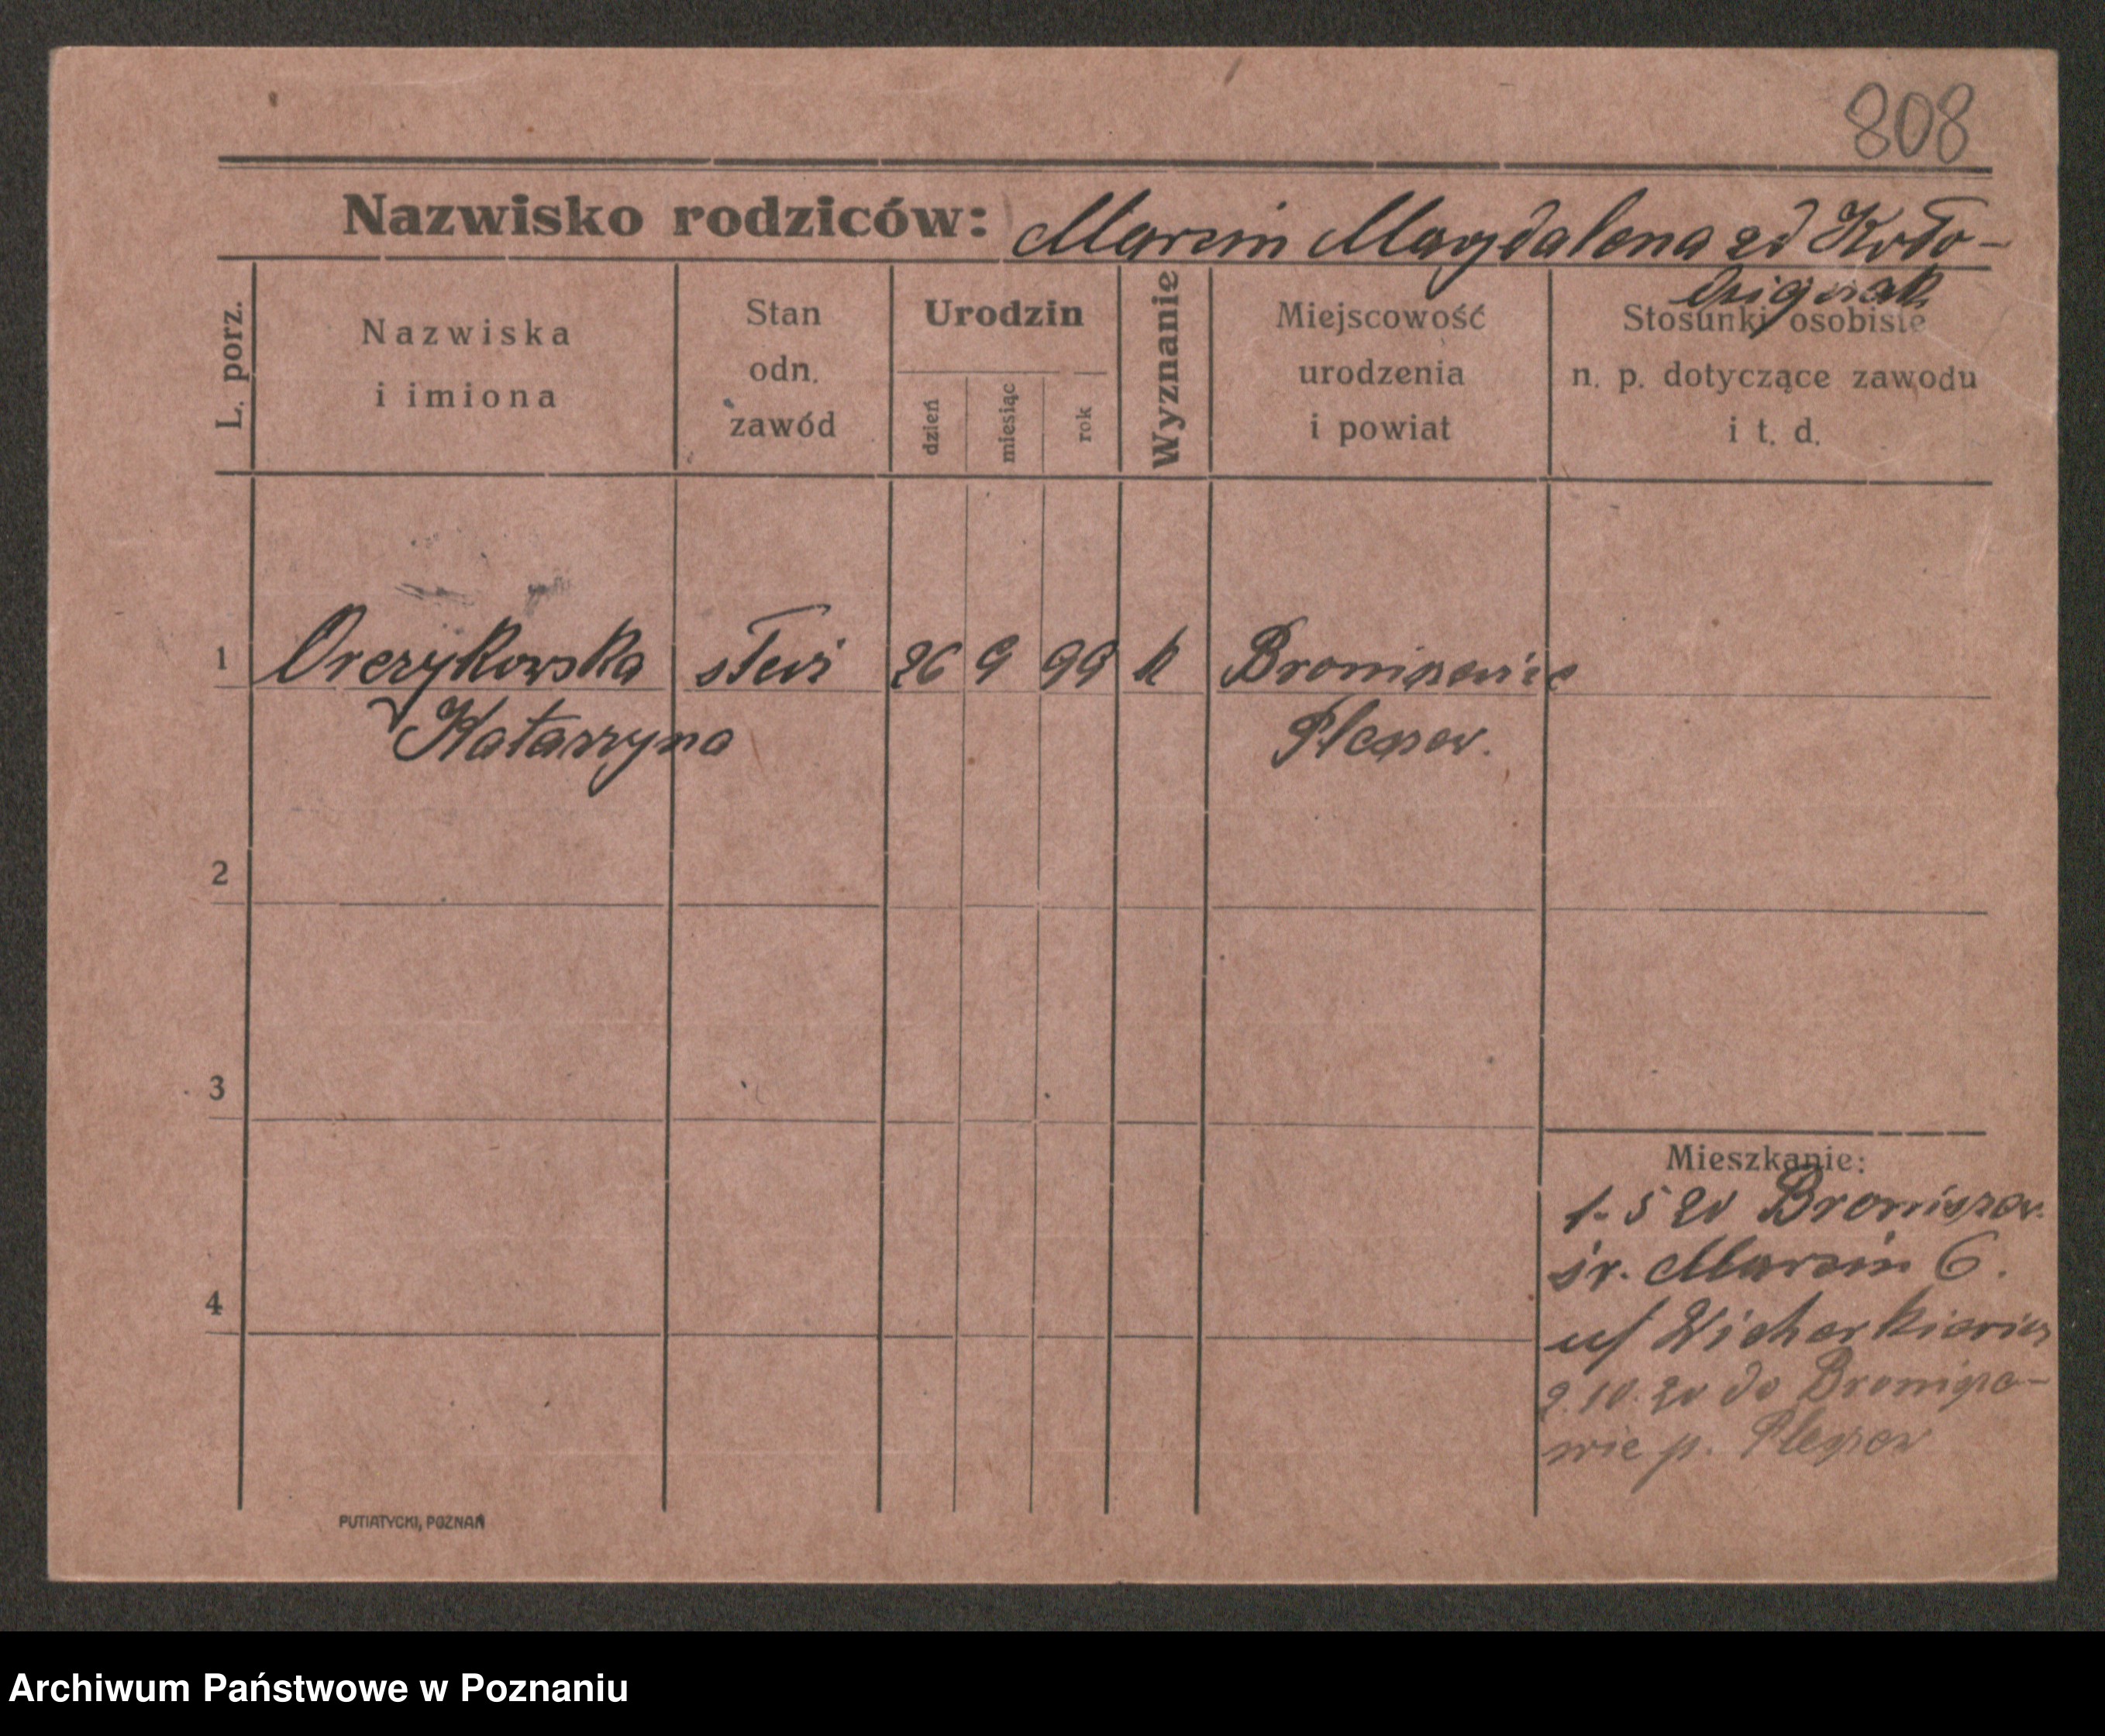 808
Nazwisko rodziców: Marcin Magdalena zd Koło-
L. porz.
Nazwiska
i imiona
Stan
odn.
zawód
Urodzin
dzień
miesiąc
rok
Wyznanie
Miejscowość
urodzenia
i powiat
Stosunki osobiste
n. p. dotyczące zawodu
i t. d.
1 Orczykowska służ 26 9 99 k Broniszewice
Katarzyna Pleszew.
2
3
4
Mieszkanie:
1. 5 20 Broniszew.
św. Marcin 6.
u/ Wicherkiewicz
9.10.20 do Bronisze-
wic p. Pleszew
PUTIATYCKI, POZNAŃ
Archiwum Państwowe w Poznaniu